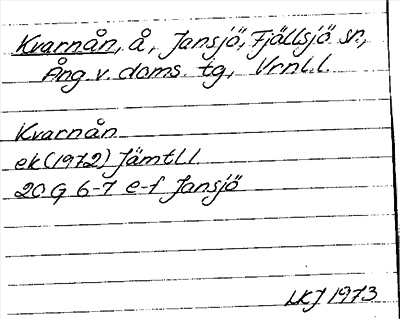 Kvarnån, å, Jansjö, Fjällsjö sn,
Ång. v. doms. tg, Vrnl.l.
Kvarnån
ek (1972) Jämtl.l.
20G 6-7 e-f Jansjö
LKJ 1973